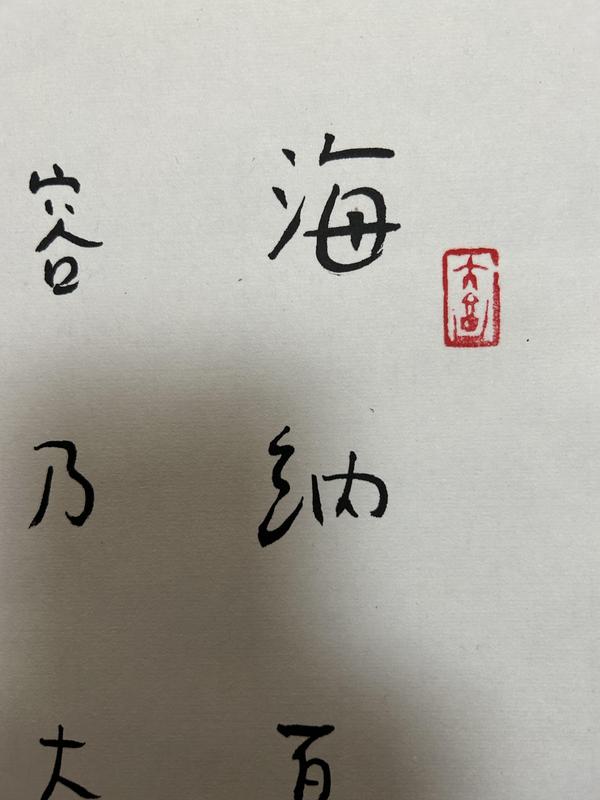 海纳百
容乃大